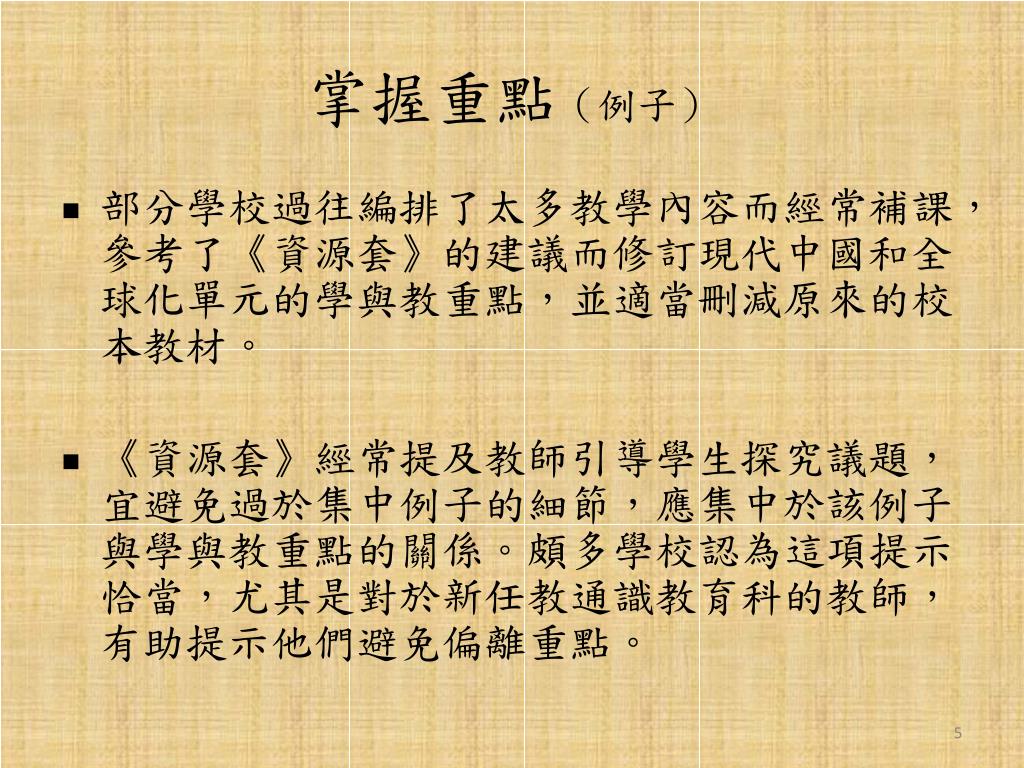 掌握重點（例子）
■ 部分學校過往編排了太多教學內容而經常補課，
參考了《資源套》的建議而修訂現代中國和全
球化單元的學與教重點，並適當刪減原來的校
本教材。
■ 《資源套》經常提及教師引導學生探究議題，
宜避免過於集中例子的細節，應集中於該例子
與學與教重點的關係。頗多學校認為這項提示
恰當，尤其是對於新任教通識教育科的教師，
有助提示他們避免偏離重點。
5